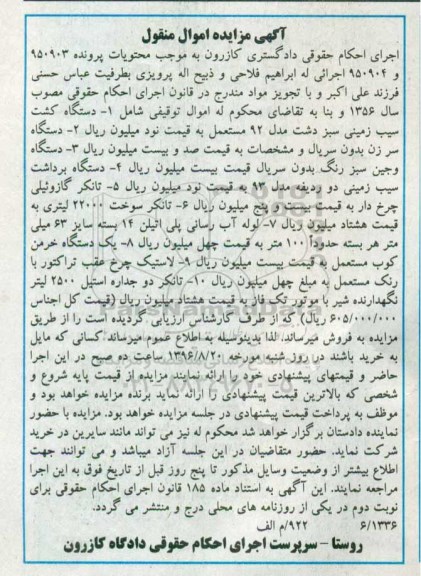 آگهی مزایده اموال منقول
اجرای احکام حقوقی دادگستری کازرون به موجب محتویات پرونده ۹۵۰۹۰۳
و ۹۵۰۹۰۴ اجرائی له ابراهیم فلاحی و ذبیح اله پرویزی بطرفیت عباس حسنی
فرزند علی اکبر و با تجویز مواد مندرج در قانون اجرای احکام حقوقی مصوب
سال ۱۳۵۶ و بنا به تقاضای محکوم له اموال توقیفی شامل ۱- دستگاه کشت
سیب زمینی سبز دشت مدل ۹۲ مستعمل به قیمت نود میلیون ریال ۲- دستگاه
سر زن بدون سریال و مشخصات به قیمت صد و بیست میلیون ریال ۳- دستگاه
وجین سبز رنگ بدون سریال قیمت بیست میلیون ریال ۴- دستگاه برداشت
سیب زمینی دو ردیفه مدل ۹۳ به قیمت نود میلیون ریال ۵- تانکر گازوئیلی
چرخ دار به قیمت بیست و پنج میلیون ریال ۶- تانکر سوخت ۲۲۰۰۰ لیتری به
قیمت هشتاد میلیون ریال ۷- لوله آب رسانی پلی اتیلن ۱۴ بسته سایز ۶۳ میلی
متر هر بسته حدوداً ۱۰۰ متر به قیمت چهل میلیون ریال ۸- یک دستگاه خرمن
کوب مستعمل به قیمت بیست میلیون ریال ۹- لاستیک چرخ عقب تراکتور با
رنگ مستعمل به مبلغ چهل میلیون ریال ۱۰- تانکر دو جداره استیل ۲۵۰۰ لیتر
نگهدارنده شیر با موتور تک فاز به قیمت هشتاد میلیون ریال (قیمت کل اجناس
۶۰۵/۰۰۰/۰۰۰ ریال) که از طرف کارشناس ارزیابی گردیده است را از طریق
مزایده به فروش میرساند. لذا بدینوسیله به اطلاع عموم میرساند کسانی که مایل
به خرید باشند در روز شنبه مورخه ۱۳۹۶/۸/۲۰ ساعت ده صبح در این اجرا
حاضر و قیمتهای پیشنهادی خود را ارائه نمایند مزایده از قیمت پایه شروع و
شخصی که بالاترین قیمت پیشنهادی را ارائه نماید برنده مزایده خواهد بود و
موظف به پرداخت قیمت پیشنهادی در جلسه مزایده خواهد بود. مزایده با حضور
نماینده دادستان برگزار خواهد شد محکوم له نیز می تواند مانند سایرین در خرید
شرکت نماید. حضور متقاضیان در این جلسه آزاد میباشد و می توانند جهت
اطلاع بیشتر از وضعیت وسایل مذکور تا پنج روز قبل از تاریخ فوق به این اجرا
مراجعه نمایند. این آگهی به استناد ماده ۱۸۵ قانون اجرای احکام حقوقی برای
نوبت دوم در یکی از روزنامه های محلی درج و منتشر می گردد.
۶/۱۳۳۶ ۹۲۲/م الف
روستا - سرپرست اجرای احکام حقوقی دادگاه کازرون